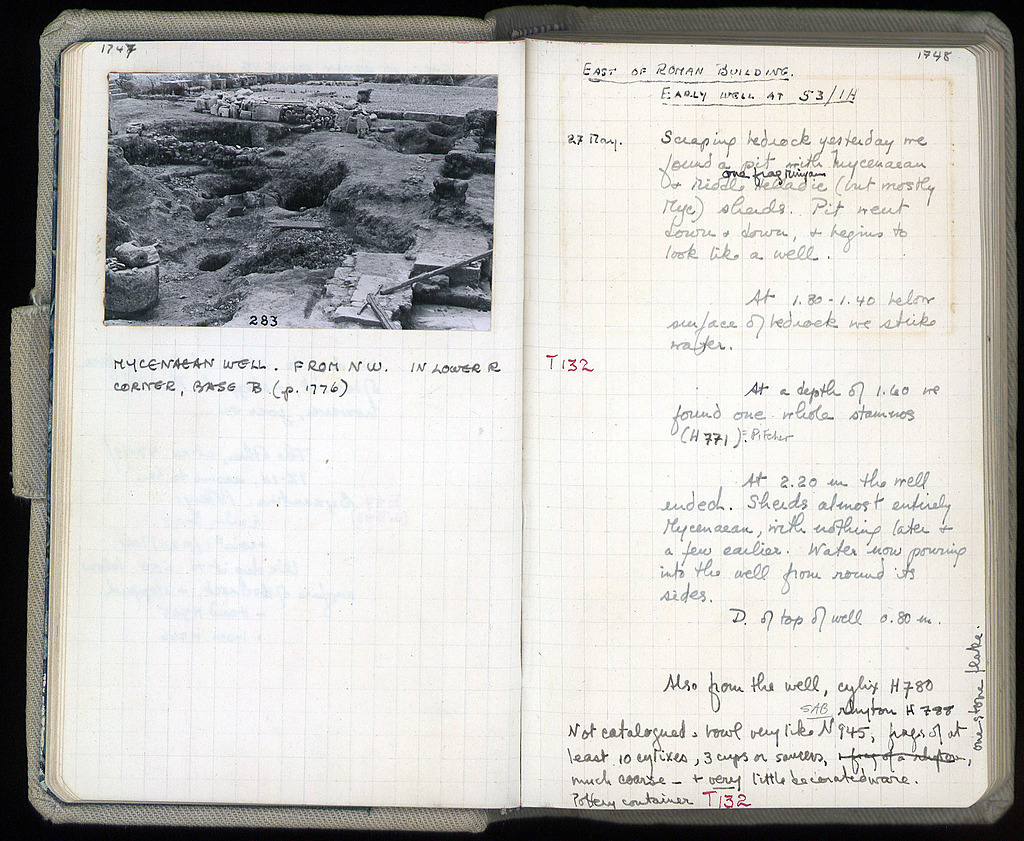 1747
283
MYCENAEAN WELL. FROM NW. IN LOWER R
CORNER, BASE B (p. 1776)
1748
EAST OF ROMAN BUILDING.
EARLY WELL AT 53/1H
27 May.
Scraping bedrock yesterday we
found a pit with Mycenaean
one frag Minyan
+ Middle Helladic (but mostly
Myc) sherds. Pit went
down + down, + begins to
look like a well.
At 1.30-1.40 below
surface of bedrock we strike
water.
T132
At a depth of 1.60 we
found one whole stamnos
(H 771) = Pitcher
At 2.20 m the well
ended. Sherds almost entirely
Mycenaean, with nothing later +
a few earlier. Water now pouring
into the well from round its
sides.
D. of top of well 0.80 m.
Also from the well, cylix H 780
SAB rhyton H 788
one stone flake.
Not catalogued: bowl very like N 945, frags of at
least 10 cylixes, 3 cups or saucers, + frag of a,
much coarse — + very little decorated ware.
Pottery container T132